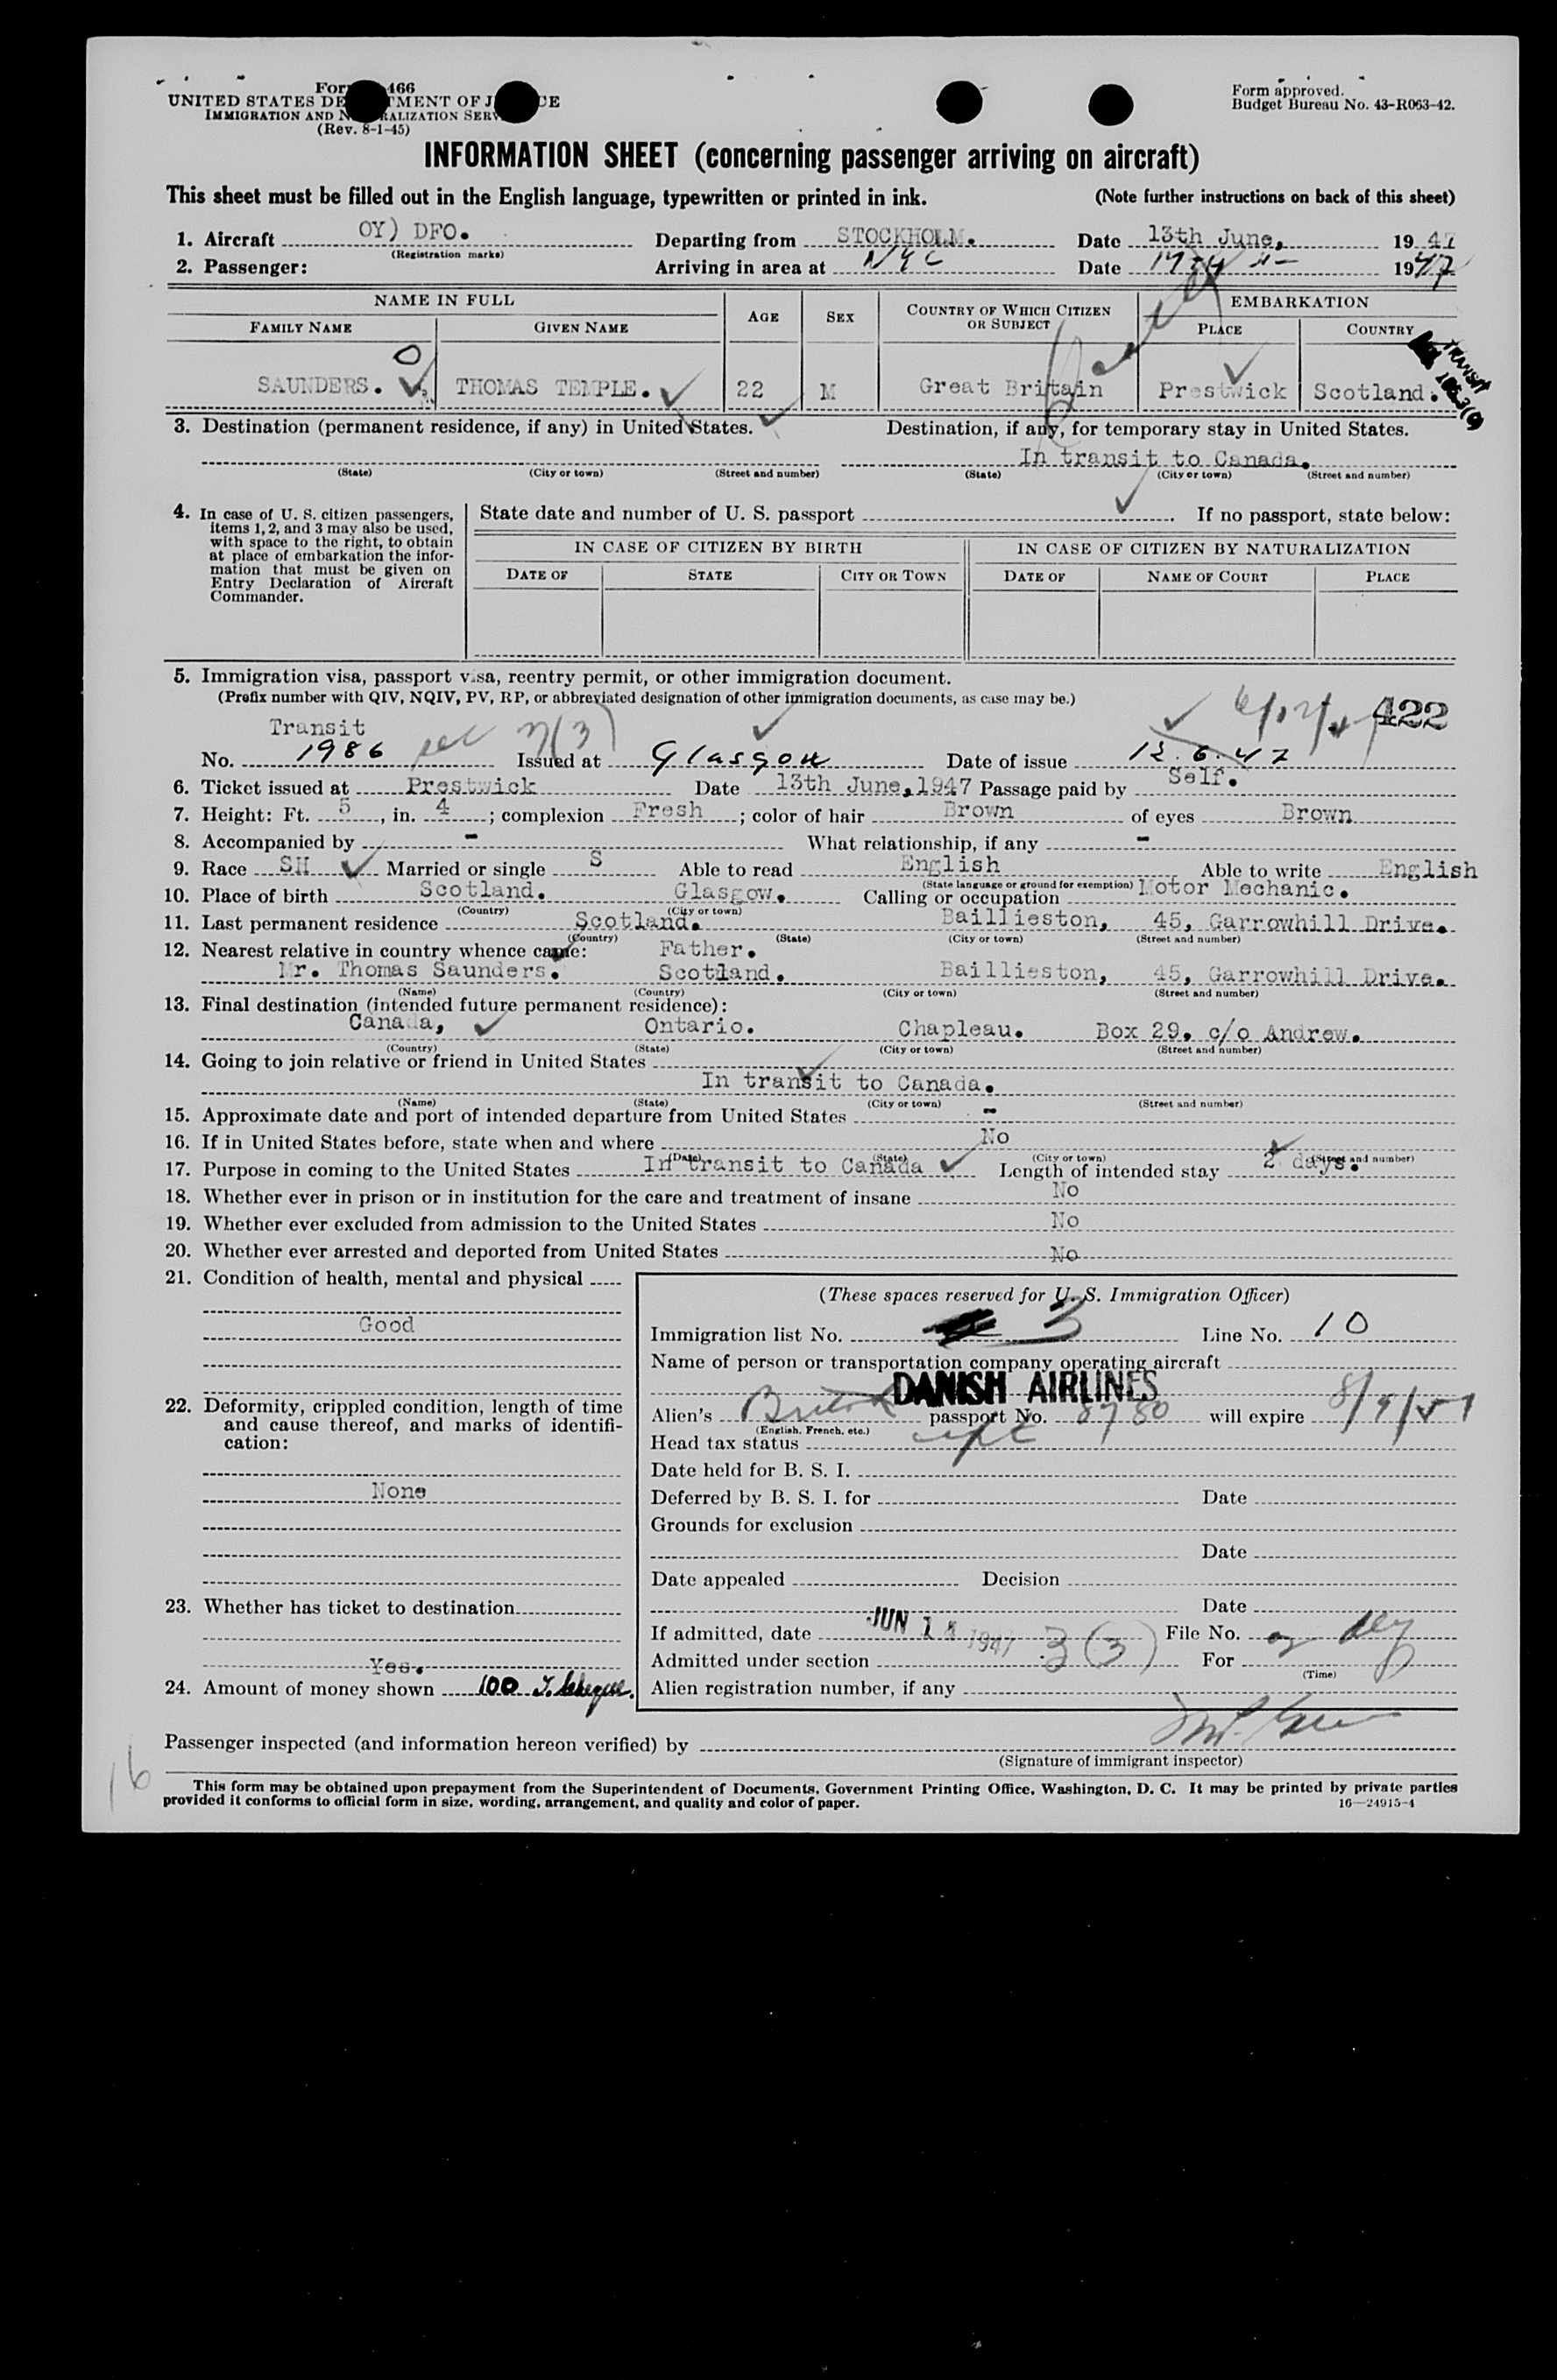 466
UNITED STATES DE TMENT OF J CE
IMMIGRATION AND N RALIZATION SERV
(Rev. 8-1-45)
Form approved.
Budget Bureau No. 43-R063-42.
INFORMATION SHEET (concerning passenger arriving on aircraft)
This sheet must be filled out in the English language, typewritten or printed in ink. (Note further instructions on back of this sheet)
1. Aircraft OY) DFO. Departing from STOCKHOLM. Date 13th June, 19 47
(Registration marks)
2. Passenger: Arriving in area at NYC Date 1947
NAME IN FULL AGE SEX COUNTRY OF WHICH CITIZEN OR SUBJECT EMBARKATION
FAMILY NAME GIVEN NAME PLACE COUNTRY
TRANSIT
SAUNDERS. THOMAS TEMPLE. 22 M Great Britain Prestwick Scotland.
3. Destination (permanent residence, if any) in United States. Destination, if any, for temporary stay in United States.
In transit to Canada.
(State) (City or town) (Street and number) (State) (City or town) (Street and number)
4. In case of U. S. citizen passengers, items 1, 2, and 3 may also be used, with space to the right, to obtain at place of embarkation the information that must be given on Entry Declaration of Aircraft Commander.
State date and number of U. S. passport . If no passport, state below:
IN CASE OF CITIZEN BY BIRTH IN CASE OF CITIZEN BY NATURALIZATION
DATE OF STATE CITY OR TOWN DATE OF NAME OF COURT PLACE
5. Immigration visa, passport visa, reentry permit, or other immigration document.
(Prefix number with QIV, NQIV, PV, RP, or abbreviated designation of other immigration documents, as case may be.)
422
Transit
No. 1986 Issued at Glasgow Date of issue 13.6.47
6. Ticket issued at Prestwick Date 13th June, 1947 Passage paid by Self.
7. Height: Ft. 5, in. 4; complexion Fresh; color of hair Brown of eyes Brown
8. Accompanied by - What relationship, if any -
9. Race SH Married or single S Able to read English Able to write English
(State language or ground for exemption)
10. Place of birth Scotland. Glasgow. Calling or occupation Motor Mechanic.
(Country) (City or town)
11. Last permanent residence Scotland. Baillieston, 45, Garrowhill Drive.
(Country) (State) (City or town) (Street and number)
12. Nearest relative in country whence came: Father.
Mr. Thomas Saunders. Scotland. Baillieston, 45, Garrowhill Drive.
(Name) (Country) (City or town) (Street and number)
13. Final destination (intended future permanent residence):
Canada, Ontario. Chapleau. Box 29. c/o Andrew.
(Country) (State) (City or town) (Street and number)
14. Going to join relative or friend in United States
In transit to Canada.
(Name) (State) (City or town) (Street and number)
15. Approximate date and port of intended departure from United States -
16. If in United States before, state when and where No
(Date) (State) (City or town) (Street and number)
17. Purpose in coming to the United States In transit to Canada Length of intended stay 2 days.
18. Whether ever in prison or in institution for the care and treatment of insane No
19. Whether ever excluded from admission to the United States No
20. Whether ever arrested and deported from United States No
21. Condition of health, mental and physical
Good
22. Deformity, crippled condition, length of time and cause thereof, and marks of identification:
None
23. Whether has ticket to destination
Yes.
24. Amount of money shown 100
(These spaces reserved for U. S. Immigration Officer)
Immigration list No. 3 Line No. 10
Name of person or transportation company operating aircraft
DANISH AIRLINES
Alien's British passport No. 8780 will expire
(English, French, etc.)
Head tax status
Date held for B. S. I.
Deferred by B. S. I. for Date
Grounds for exclusion
Date
Date appealed Decision
Date
If admitted, date JUN 1947 File No.
Admitted under section 3(3) For
(Time)
Alien registration number, if any
Passenger inspected (and information hereon verified) by
(Signature of immigrant inspector)
16
This form may be obtained upon prepayment from the Superintendent of Documents, Government Printing Office, Washington, D. C. It may be printed by private parties
provided it conforms to official form in size, wording, arrangement, and quality and color of paper.
16—24915-4